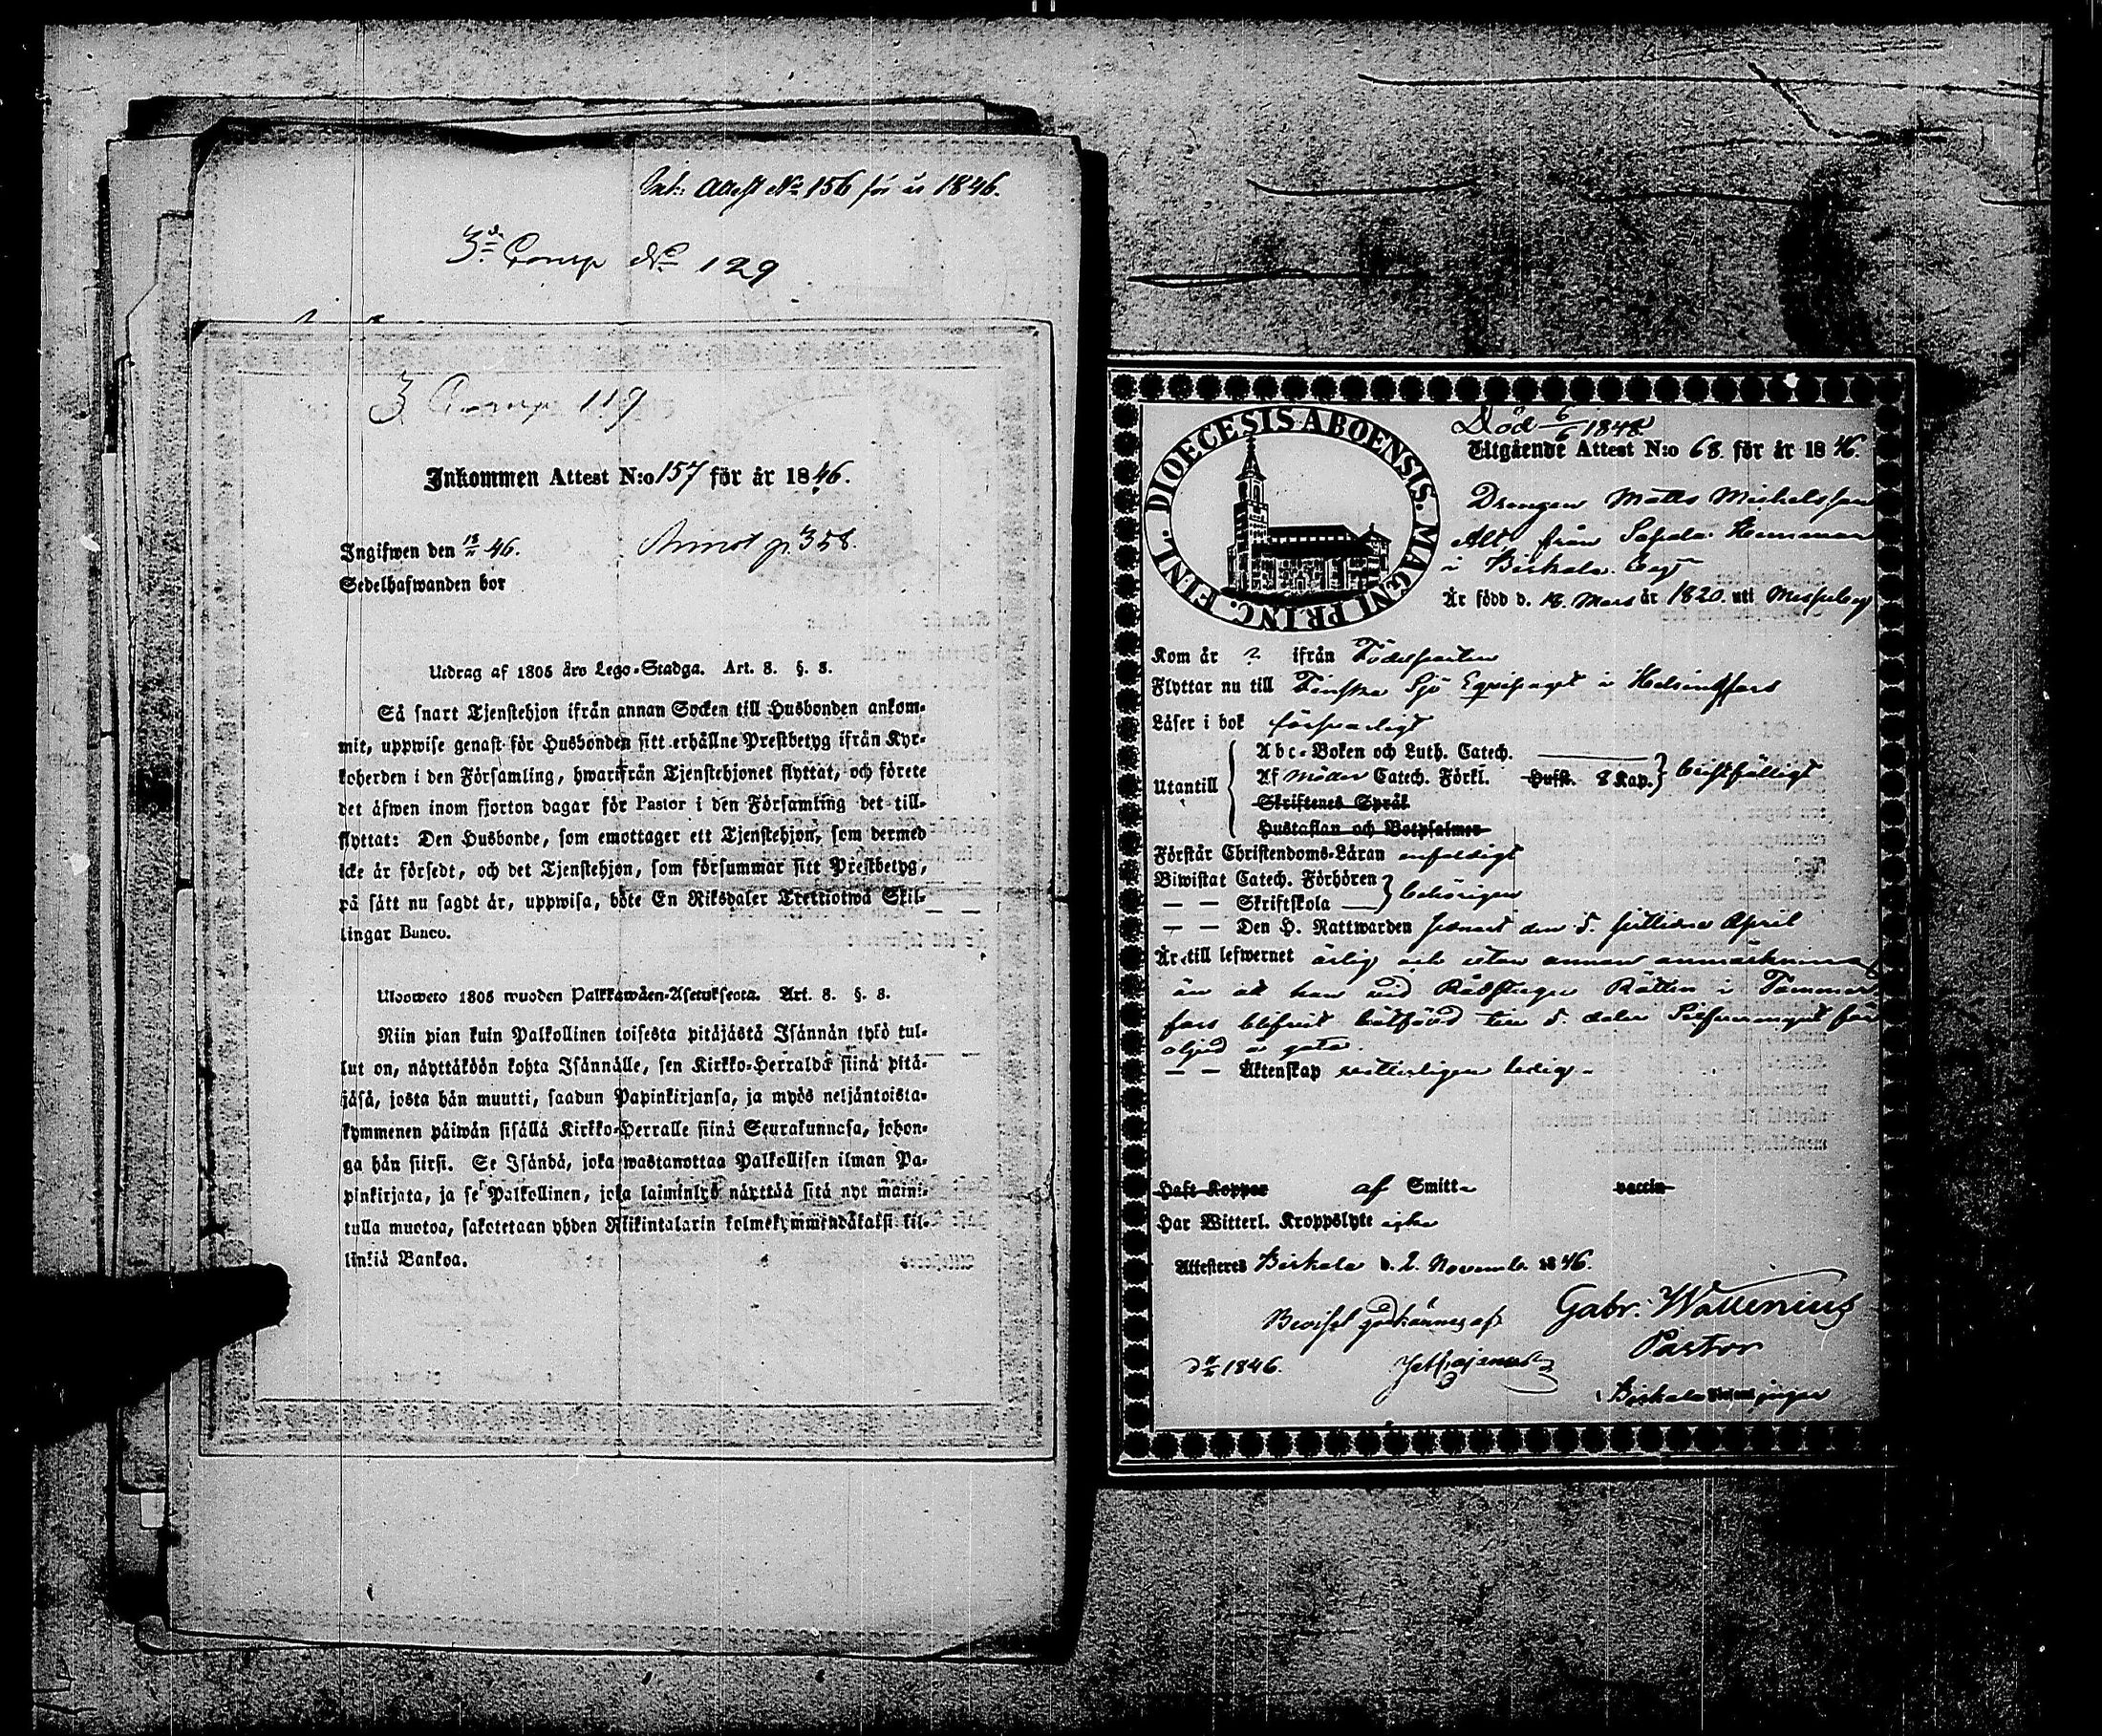 Ink: Attest No 156 för år 1846.
3de Comp No 129
3 Comp 119
Inkommen Attest N:o 157 för år 1846.
Ingifwen den 46.
Annot p. 358.
Sedelhafwanden bor
Utdrag af 1805 års Lego-Stadga. Art. 8. §. 8.
Så snart Tjenstehjon ifrån annan Socken till Husbonden ankom-
mit, uppwise genast för Husbonden sitt erhållne Prestbetyg ifrån Kyr-
koherden i den Församling, hwarifrån Tjenstehjonet flyttat, och förete
det äfwen inom fjorton dagar för Pastor i den Församling det till-
flyttat: Den Husbonde, som emottager ett Tjenstehjon, som dermed
icke är försedt, och det Tjenstehjon, som försummar sitt Prestbetyg,
på sätt nu sagdt är, uppwisa, böte En Riksdaler Trettiotwå Skil-
lingar Banco.
Ulosweto 1805 wuoden Palkkawäen-Asetuksesta. Art. 8. §. 8.
Niin pian kuin Palkollinen toisesta pitäjästä Isännän tykö tul-
lut on, näyttäköön kohta Isännälle, sen Kirkko-Herralda siinä pitä-
jäsä, josta hän muutti, saadun Papinkirjansa, ja myös neljäntoista-
kymmenen päiwän sisällä Kirkko-Herralle siinä Seurakunnasa, johon-
ga hän siirsi. Se Isändä, joka wastanottaa Palkollisen ilman Pa-
pinkirjata, ja se Palkollinen, joka laiminlyö näyttää sitä nyt maini-
tulla muotoa, sakotetaan yhden Riikintalarin kolmekymmendäkaksi kil-
linkiä Bankoa.
DIOECESIS ABOENSIS. MAGNI PRINC. FINL.
Död 6/6 1848
Utgående Attest N:o 68. för år 1846.
Drengen Matts Michelsson
Alt från Hemman
i Birkala
Är född d. 18. Mars år 1820. uti
Kom år ? ifrån Födelseorten
Flyttar nu till Finska Sjö Equipaget i Helsingfors
Läser i bok försvarligt
Utantill
Abc-Boken och Luth. Catech.
Af Catech. Förkl. Husk. 8 Kap. bristfälligt
Skriftenes Språk
Hustaflan och Botpsalmer
Förstår Christendoms-Läran enfaldigt
Biwistat Catech. Förhören
— — Skriftskola behörigen
— — Den H. Nattwarden senast den 5. sistlidne April
Är till lefwernet ärlig och utan annan anmärkning
än att han wid Rådstugu Rätten i Tammer
fors blifwit bötfäld till 5. daler Silfwermynt för
oljud å gata.
— — Äktenskap witterligen ledig.
Haft Koppor af Smitta vaccin
Har Witterl. Kroppslyte icke
Attesteras Birkala d. 2. Novemb. 1846.
Gabr: Wallenius
Pastor
Beviset godkännes af
1846.
i Birkala